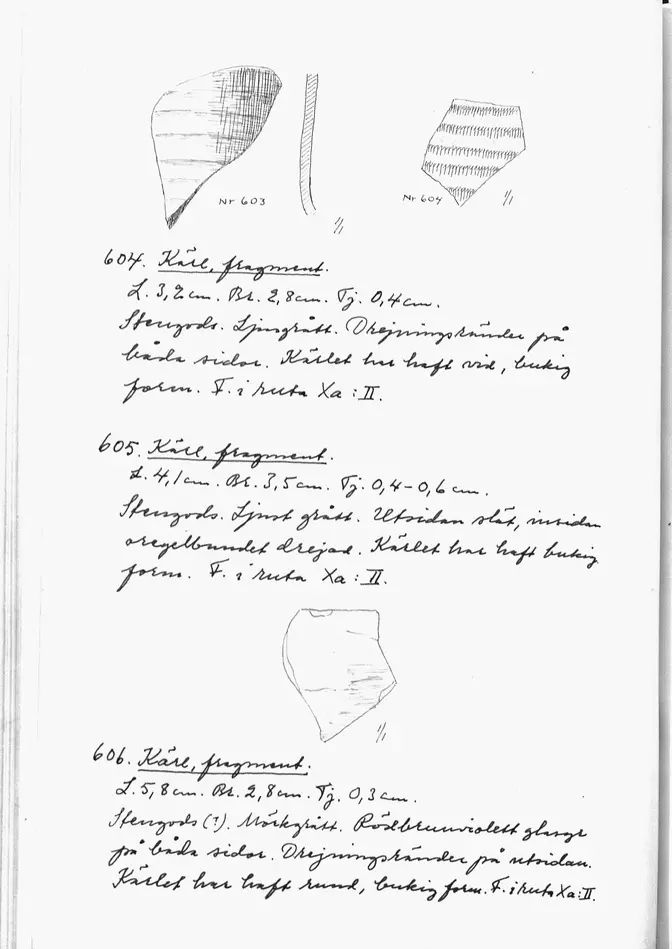 Nr 603
Nr 604
1/1
1/1
604. Kärl, fragment.
L. 3,2 cm. Br. 2,8 cm. Tj. 0,4 cm.
Stengods. Ljusgrått. Drejningsränder på
båda sidor. Kärlet har haft vid, bukig
form. F. i ruta Xa : II.
605. Kärl, fragment.
L. 4,1 cm. Br. 3,5 cm. Tj. 0,4-0,6 cm.
Stengods. Ljust grått. Utsidan slät, insidan
oregelbundet drejad. Kärlet har haft bukig
form. F. i ruta Xa : II.
1/1
606. Kärl, fragment.
L. 5,8 cm. Br. 2,8 cm. Tj. 0,3 cm.
Stengods (?). Mörkgrått. Rödbrunviolett glasyr
på båda sidor. Drejningsränder på utsidan.
Kärlet har haft rund, bukig form. F. i ruta Xa : II.